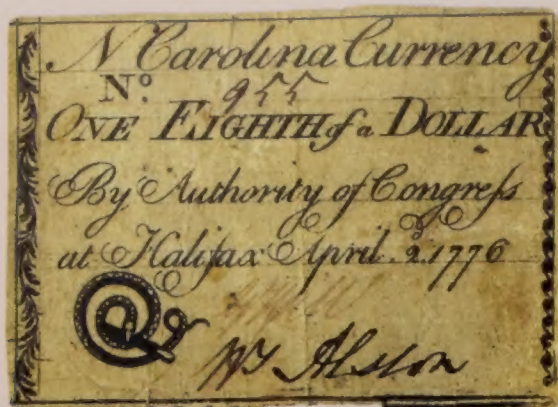 N Carolina Currency
No. 955
ONE EIGHTH of a DOLLAR
By Authority of Congreſs
at Halifax April. 2. 1776
Wm Alston